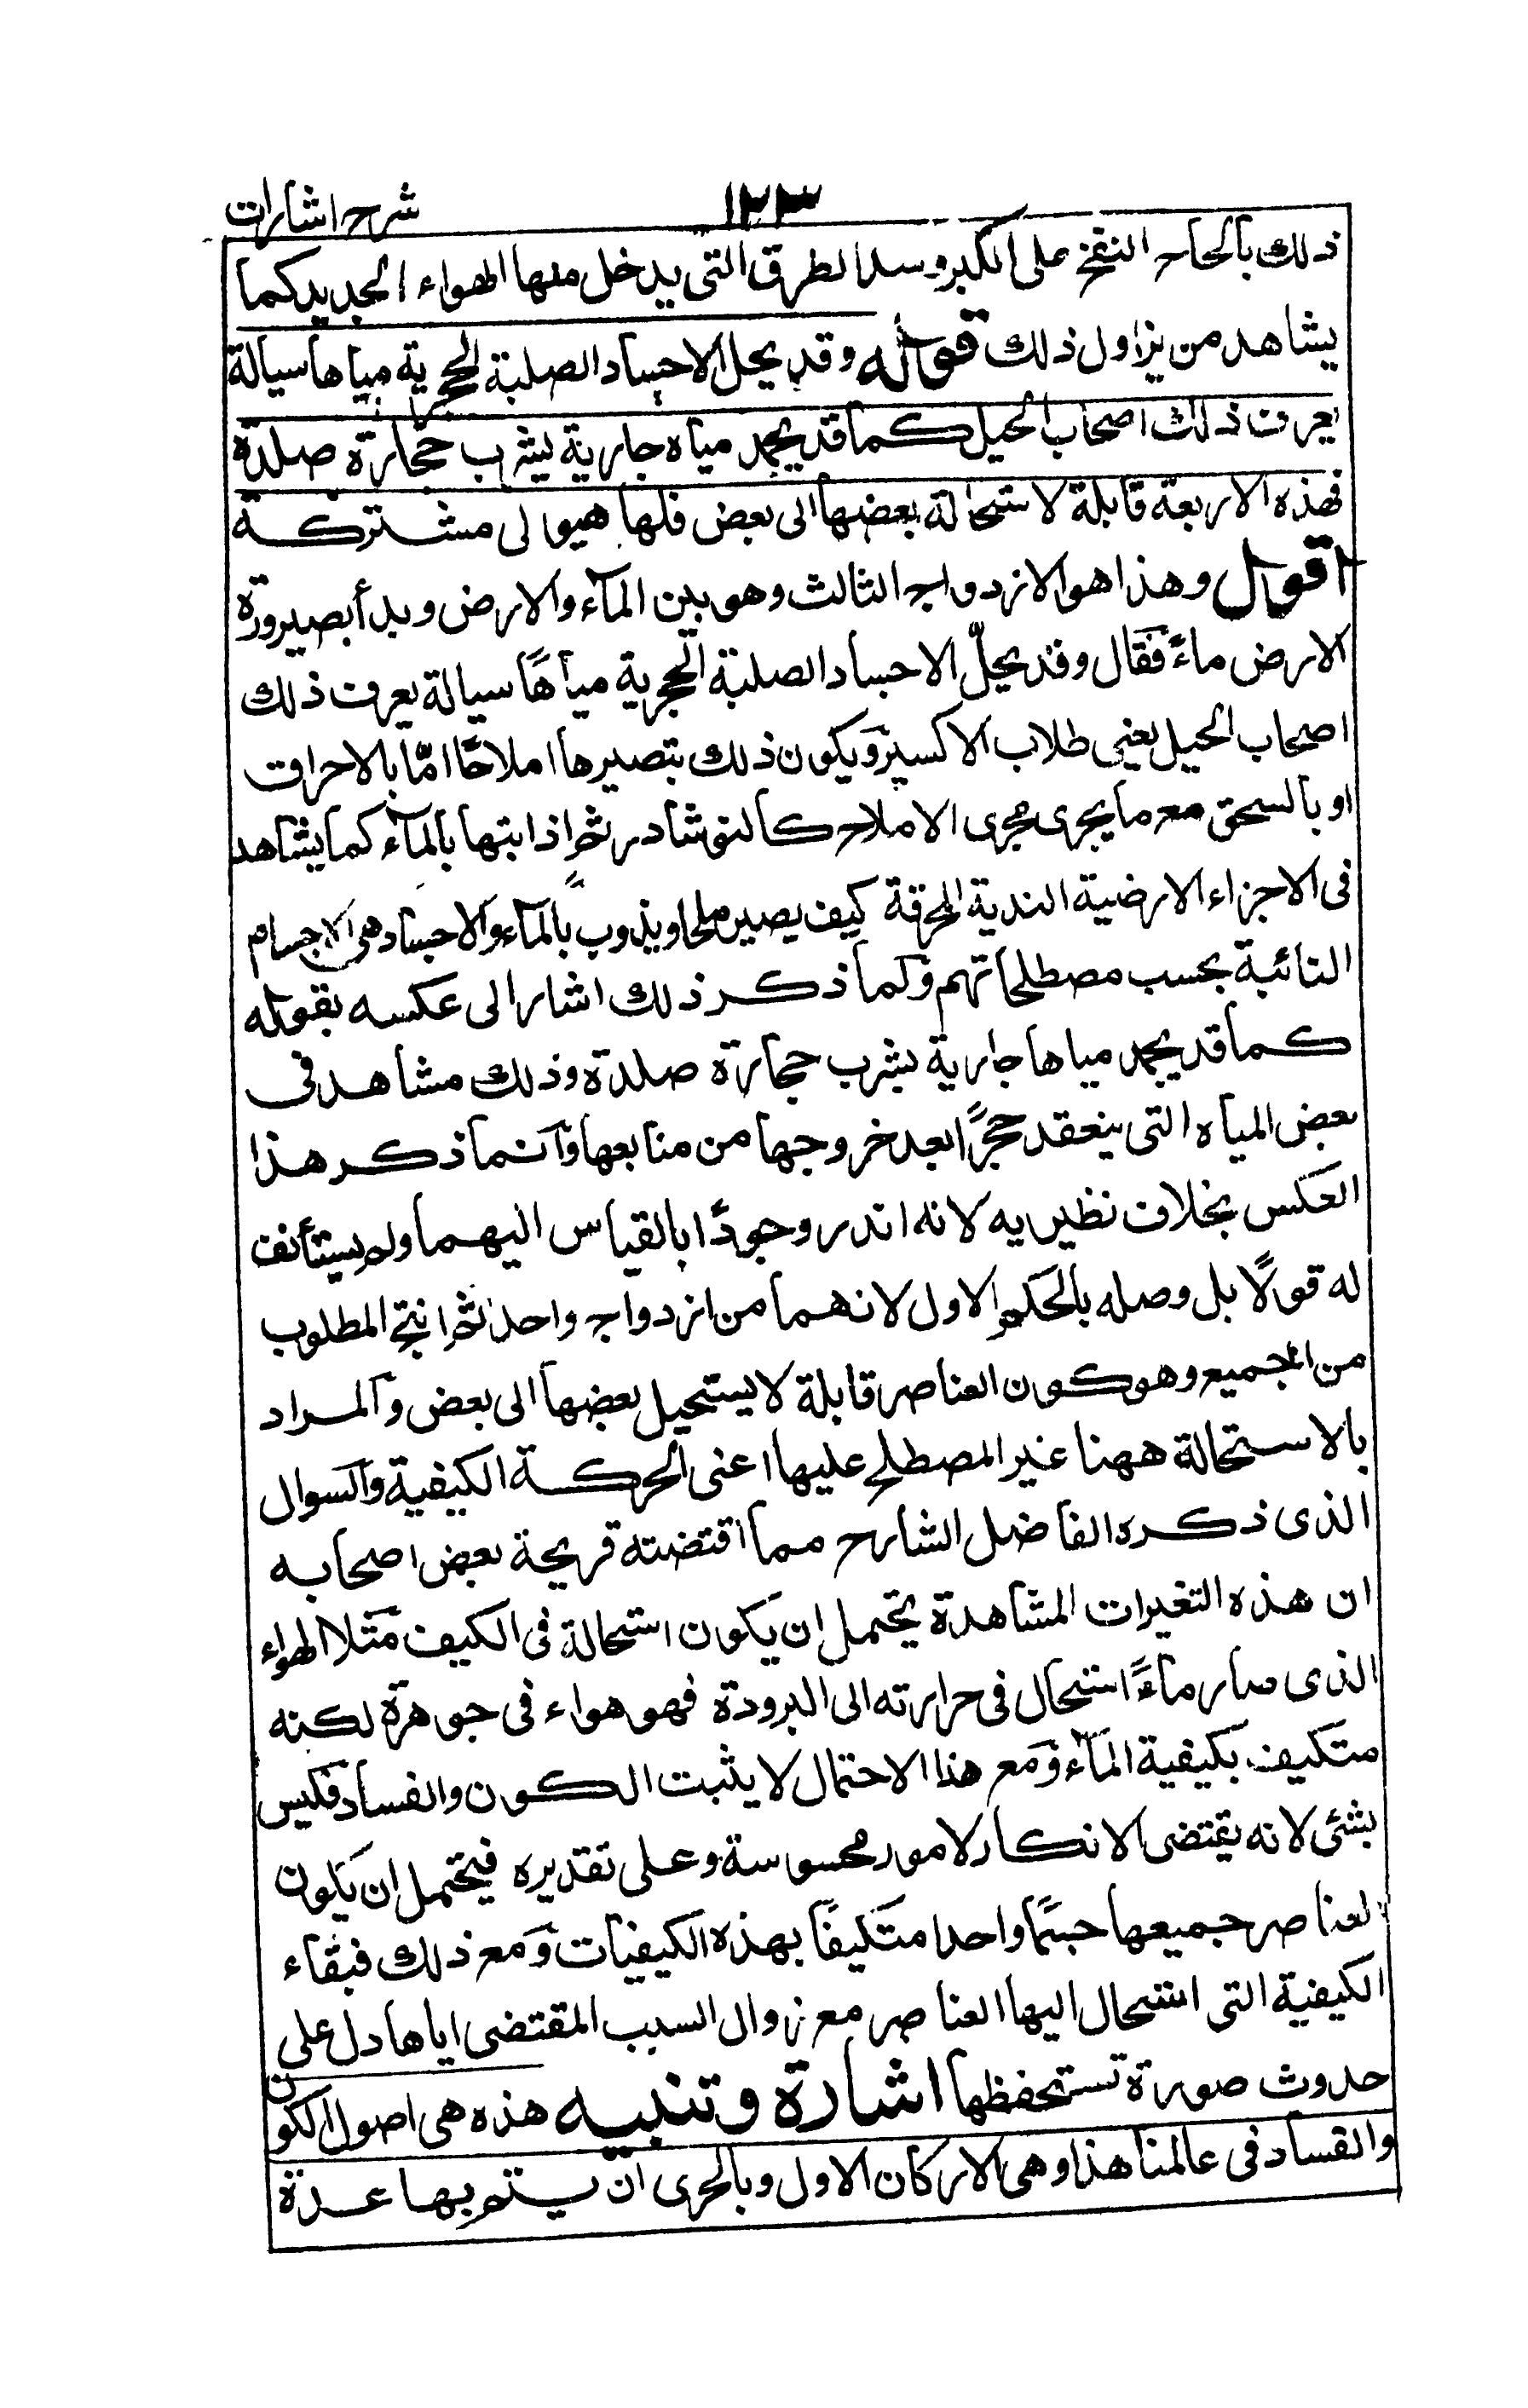 شرح اشارات
١٢٣
ذلك بالحاح النفخ على الكير وسد الطرق التى يدخل منها الهواء الجديد كما
يشاهد من يزاول ذلك قوله وقد يحل الاجساد الصلبة الحجرية مياها سيالة
يعرف ذلك اصحاب الحيل كما قد يجمد مياه جارية يشرب حجارة صلدة
فهذه الاربعة قابلة لاستحالة بعضها الى بعض فلها هيولى مشتركة
اقول وهذا هو الازدواج الثالث وهو بين الماء والارض وبدأ بصيرورة
الارض ماءً فقال وقد يحلّ الاجساد الصلبة الحجرية مياهًا سيالة يعرف ذلك
اصحاب الحيل يعنى طلاب الاكسير ويكون ذلك بتصيرها املاحًا امّا بالاحراق
او بالسحق مع ما يجرى مجرى الاملاح كالنوشادر ثم اذابتها بالماء كما يشاهد
فى الاجزاء الارضية الندية المحرقة كيف يصير ملحا ويذوب بالماء والاجساد هى الاجسام
الذائبة بحسب مصطلحاتهم ولما ذكر ذلك اشار الى عكسه بقوله
كما قد يجمد مياها جارية يشرب حجارة صلدة وذلك مشاهد فى
بعض المياه التى ينعقد حجرًا بعد خروجها من منابعها وانما ذكر هذا
العكس بخلاف نظيريه لانه اندر وجودًا بالقياس اليهما ولم يستأنف
له قولًا بل وصله بالحكم الاول لانهما من ازدواج واحد ثم انتج المطلوب
من الجميع وهو كون العناصر قابلة لا يستحيل بعضها الى بعض والمراد
بالاستحالة ههنا غير المصطلح عليها اعنى الحركة الكيفية والسوال
الذى ذكره الفاضل الشارح مما اقتضته قريحة بعض اصحابه
ان هذه التغيرات المشاهدة يحتمل ان يكون استحالة فى الكيف مثلا الهواء
الذى صار ماءً استحال فى حرارته الى البرودة فهو هواء فى جوهرة لكنه
متكيف بكيفية الماء ومع هذا الاحتمال لا يثبت الكون والفساد فليس
بشئ لانه يقتضى الانكار لامور محسوسة وعلى تقديره فيحتمل ان يكون
العناصر جميعها جسمًا واحدا متكيفًا بهذه الكيفيات ومع ذلك فبقاء
الكيفية التى استحال اليها العناصر مع زوال السبب المقتضى اياها دل على
حدوث صورة تستحفظها اشارة وتنبيه هذه هى اصول الكون
والفساد فى عالمنا هذا وهى الاركان الاول وبالحرى ان يتم بها عدة